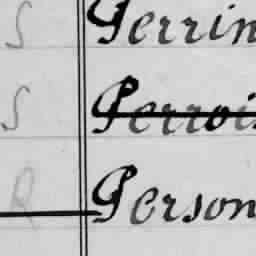 S Perrin
S Perroi
R Person